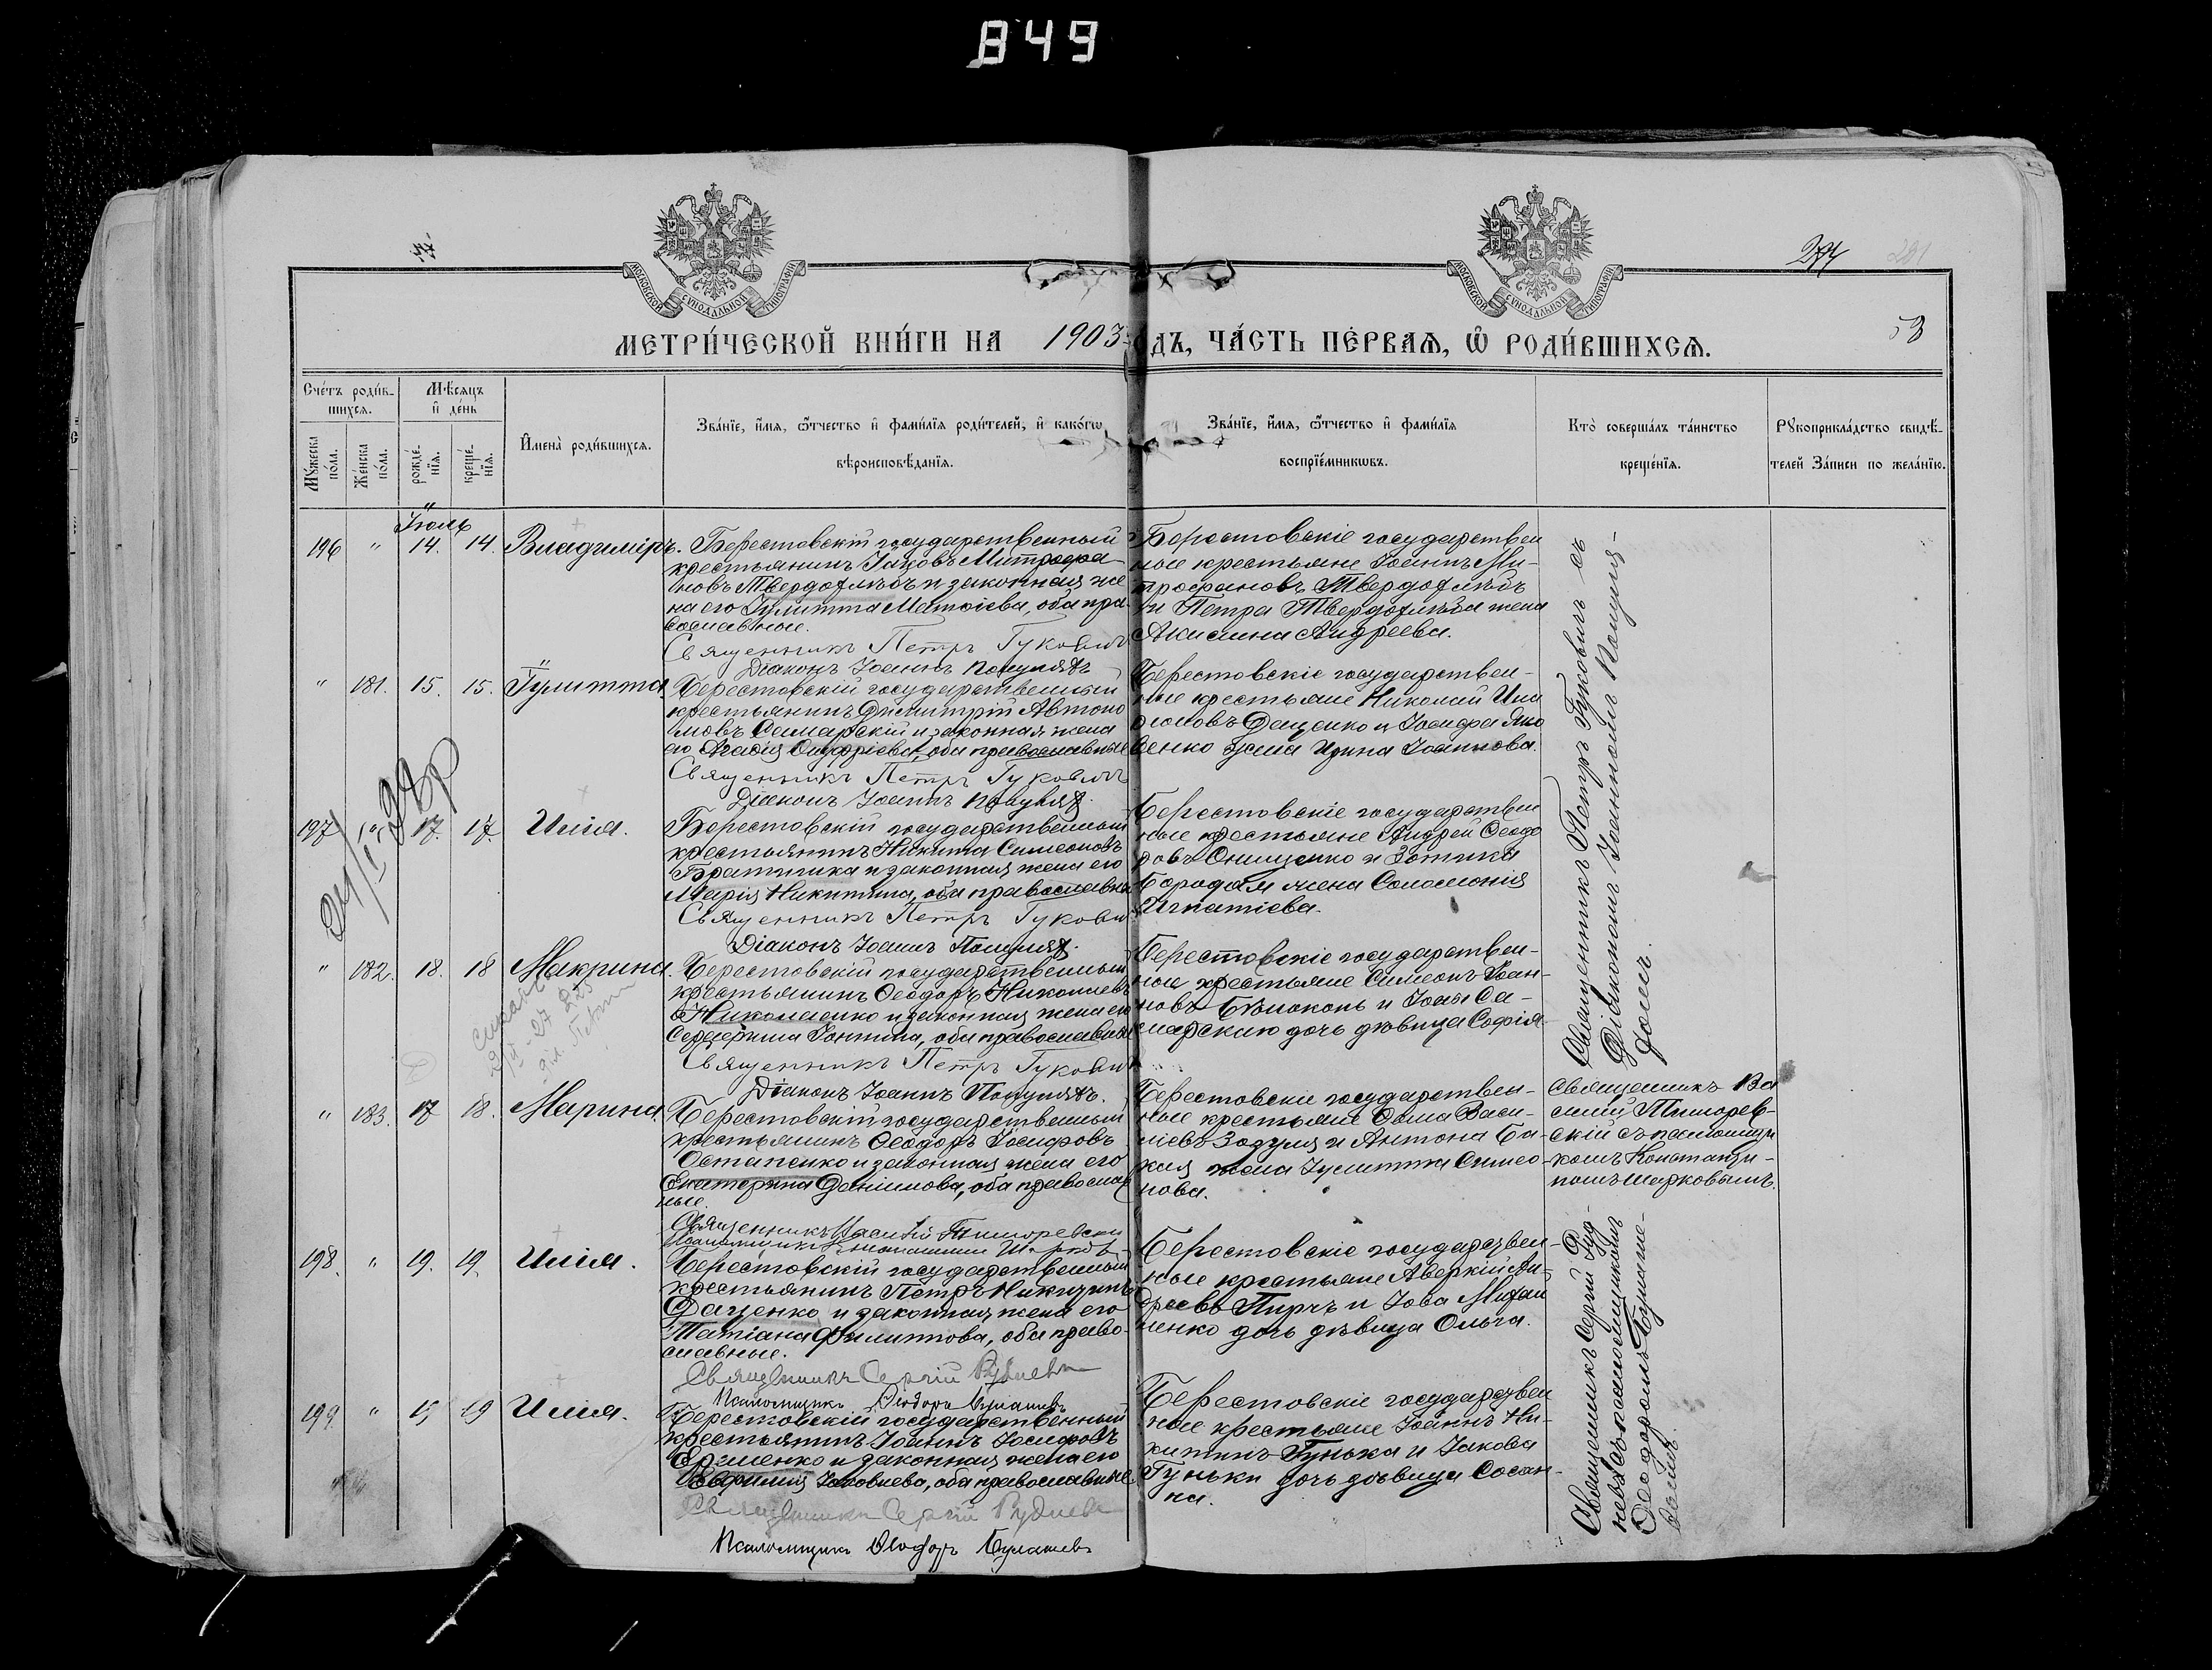 849
МОСКОВСКОЙ СѴНОДАЛЬНОЙ ТИПОГРАФІИ
МОСКОВСКОЙ СѴНОДАЛЬНОЙ ТИПОГРАФІИ
МЕТРИ́ЧЕСКОЙ КНИ́ГИ НА 1903 ДЪ, ЧА́СТЬ ПЕ́РВАѦ, Ѡ҆ РОДИ́ВШИХСѦ.
53
Сче́тъ роди́в-
шихсѧ.
Мѣ́сѧцъ
и҆ де́нь
Мꙋ́жеска по́ла.
Же́нска по́ла.
рожде́-
нїѧ.
креще́-
нїѧ.
И҆мена̀ роди́вшихсѧ.
Зва́нїе, и҆́мѧ, ѻ҆́тчество и҆ фами́лїѧ роди́телей, и҆ како́гѡ
вѣроисповѣ́данїѧ.
Зва́нїе, и҆́мѧ, ѻ҆́тчество и҆ фами́лїѧ
воспрїе́мникѡвъ.
Кто̀ соверша́лъ та́инство
креще́нїѧ.
Рꙋкоприкла́дство свидѣ́-
телей за́писи по жела́нїю.
Іюль
196 " 14. 14. Владиміръ.
Берестовскій государственный
крестьянинъ Іаковъ Митрофа-
новъ Твердохлѣбъ и законная же
на его Іулитта Матѳіева, оба пра-
вославные.
Священникъ Петръ Гуковичъ
Діаконъ Іоаннъ
Берестовскіе государствен
ные крестьяне Іоаннъ Ми-
трофановъ Твердохлѣбъ
и Петра Твердохлѣба жена
Акилина Андреева.
Священникъ Петръ Гуковичъ съ
Діакономъ Іоанномъ
" 181. 15. 15. Іулитта
Берестовскій государственный
крестьянинъ Димитрій Автоно
мовъ Самарскій и законная жена
его Агаѳія Онуфріева, оба православные
Священникъ Петръ Гуковичъ
Діаконъ Іоаннъ
Берестовскіе государствен-
ные крестьяне Николай
Даценко и Іосифа Яко
венко жена Ирина Іоаннова.
197 " 17. 17. Илія.
Берестовскій государственный
крестьянинъ Никита Симеоновъ
Братчика и законная жена его
Марія Никитина, оба православные
Священникъ Петръ Гукови
Діаконъ Іоаннъ
Берестовскіе государствен
ные крестьяне Андрей Ѳеодо
ровъ Онищенко и Зотика
жена Соломонія
Игнатіева.
" 182. 18. 18 Макрина
Берестовскій государственный
крестьянинъ Ѳеодоръ Николаевъ
Николаенко и законная жена его
Серафима оба православные
Священникъ Петръ Гукови
Діаконъ Іоаннъ
Берестовскіе государствен-
ные крестьяне Симеонъ Іоан-
новъ Бѣлоконь и Іоан Са-
марскаго дочь дѣвица Софія
" 183. 17 18. Марина.
Берестовскій государственный
крестьянинъ Ѳеодоръ Іосифовъ
Остапенко и законная жена его
Екатерина Даніилова, оба православ
ные.
Священникъ Василій Тиморевскій
Берестовскіе государствен-
ные крестьяне Ѳома Васи-
ліевъ и Антона Ба-
жена Іулитта Симео-
нова.
Священникъ Ва
силій Тиморев-
скій съ псаломщи
комъ Константи-
номъ Шарковымъ.
198. " 19. 19. Илія.
Берестовскій государственный
крестьянинъ Петръ Никитинъ
Даценко и законная жена его
Татіана Филиппова, оба право-
славные.
Священникъ Сергій Рудневъ
Псаломщикъ Ѳеодоръ Булашевъ
Берестовскіе государствен-
ные крестьяне Аверкій Ан-
дреевъ Пирчъ и Іова Михай
ленко дочь дѣвица Ольга.
Священникъ Сергій Руд-
невъ съ псаломщикомъ
Ѳеодоромъ Булаше-
вымъ.
199. " 19 19 Илія.
Берестовскій государственный
крестьянинъ Іоаннъ Іосифовъ
Ерменко и законная жена его
Евфимія Іаковлева, оба православные
Священникъ Сергій Рудневъ
Псаломщикъ Ѳеодоръ Булашевъ
Берестовскіе государствен
ные крестьяне Іоаннъ Ни-
китинъ Гунька и Іакова
Гуньки дочь дѣвица Сосан-
на.